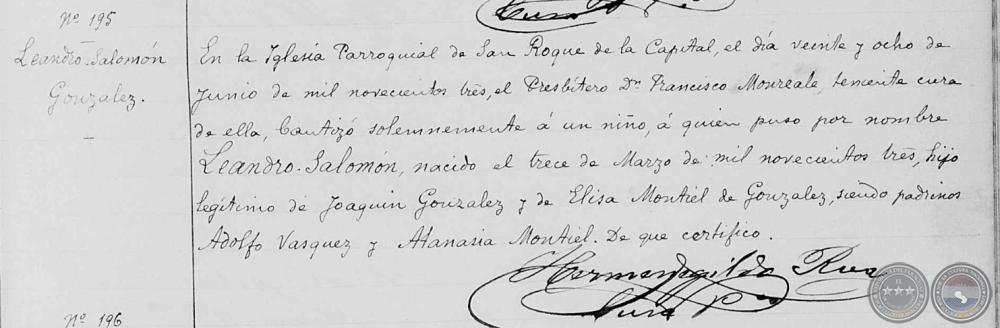 Nº 195
Leandro-Salomón
Gonzalez.
En la Iglesia Parroquial de San Roque de la Capital, el día veinte y ocho de
Junio de mil novecientos trés, el Presbítero Dn Francisco Monreale, teniente cura
de ella, bautizó solemnemente á un niño, á quien puso por nombre
Leandro-Salomón, nacido el trece de Marzo de mil novecientos trés, hijo
legítimo de Joaquin Gonzalez y de Elisa Montiel de Gonzalez, siendo padrinos
Adolfo Vasquez y Atanasia Montiel. De que certifico.
Hermenegildo Roa
Cura
Nº 196